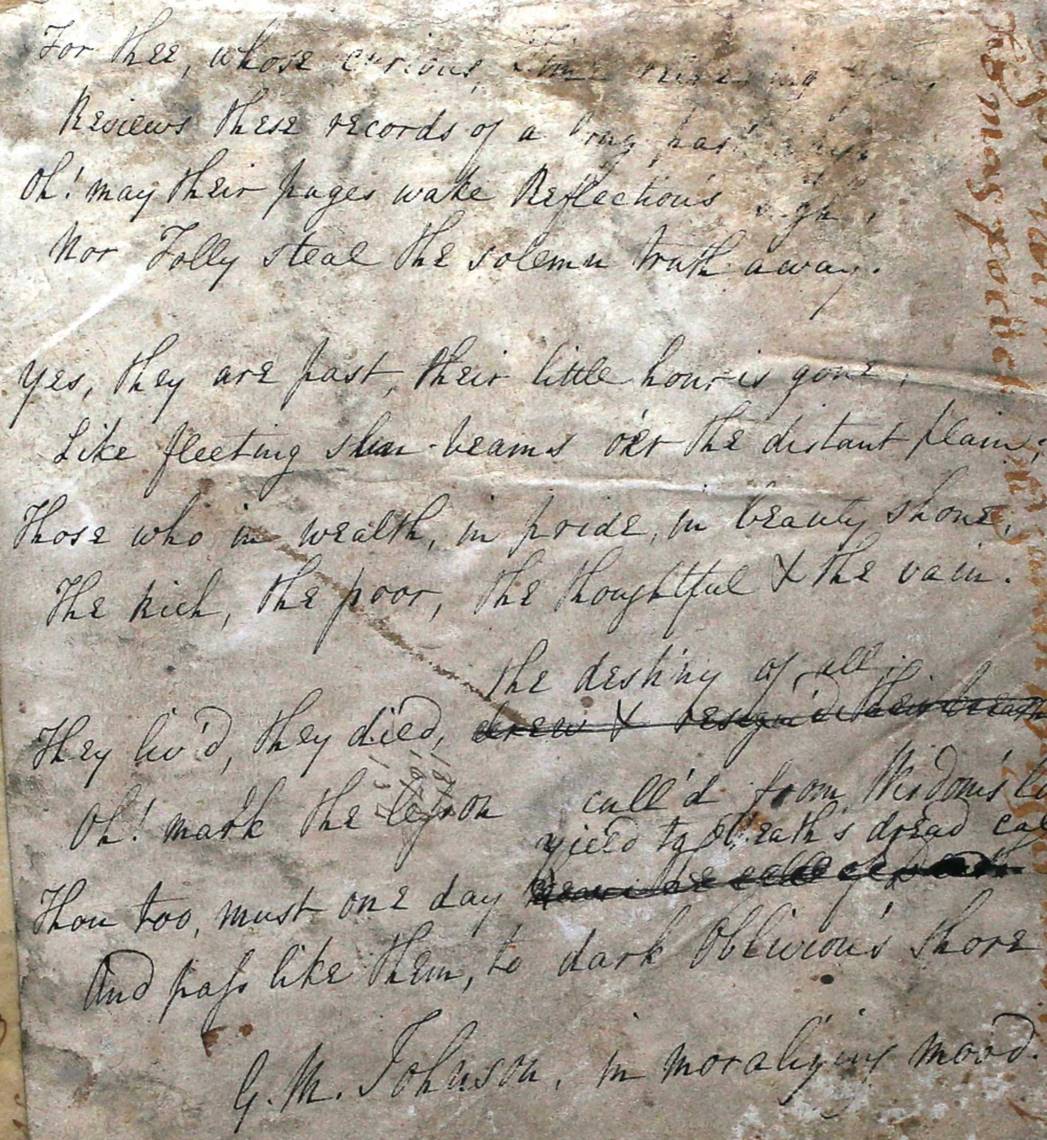 For thee, whose curious,
Reviews these records of a long past
Oh! may their pages wake Reflection's sigh,
Nor Folly steal the solemn truth away.
Yes, they are past, their little hour is gone;
Like fleeting sun-beams o'er the distant plain;
Those who in wealth, in pride, in beauty shone,
The rich, the poor, the thoughtful & the vain.
the destiny of all;
They liv'd, they died, drew & resign'd their breath
Oh! mark the lesson cull'd from Wisdom's
yield to Death's dread cal
Thou too, must one day
And paſs like them, to dark Oblivion's shore
G. M. Johnson, in moralizing mood.